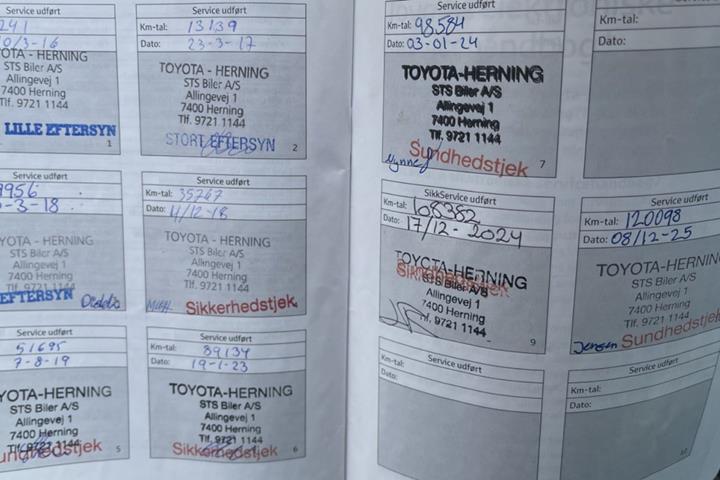 Service udført
241
0/3-16
TOYOTA - HERNING
STS Biler A/S
Allingevej 1
7400 Herning
Tlf. 9721 1144
LILLE EFTERSYN
1
Service udført
Km-tal: 13139
Dato: 23-3-17
TOYOTA - HERNING
STS Biler A/S
Allingevej 1
7400 Herning
Tlf. 9721 1144
STORT EFTERSYN
2
Service udført
9956
-3-18
YOTA - HERNING
STS Biler A/S
Allingevej 1
7400 Herning
Tlf. 9721 1144
EFTERSYN
Service udført
Km-tal: 35767
Dato: 11/12-18
TOYOTA - HERNING
STS Biler A/S
Allingevej 1
7400 Herning
Tlf. 9721 1144
Sikkerhedstjek
Service udført
51695
7-8-19
YOTA-HERNING
STS Biler A/S
Allingevej 1
7400 Herning
Tlf. 9721 1144
undhedstjek
5
Service udført
Km-tal: 89134
Dato: 19-1-23
TOYOTA-HERNING
STS Biler A/S
Allingevej 1
7400 Herning
Tlf. 9721 1144
Sikkerhedstjek
6
Service udført
Km-tal: 98584
Dato: 03-01-24
TOYOTA-HERNING
STS Biler A/S
Allingevej 1
7400 Herning
Tlf. 9721 1144
Sundhedstjek
7
Km-tal:
Dato:
SikkService udført
Km-tal: 108382
Dato: 17/12-2024
TOYOTA-HERNING
Sundhedstjek
STS Biler A/S
Allingevej 1
7400 Herning
Tlf. 9721 1144
9
Service udført
Km-tal: 120098
Dato: 08/12-25
TOYOTA-HERNING
STS Biler A/S
Allingevej 1
7400 Herning
Tlf. 9721 1144
Jensen Sundhedstjek
Service udført
Km-tal:
Dato:
Service udført
Km-tal:
Dato: